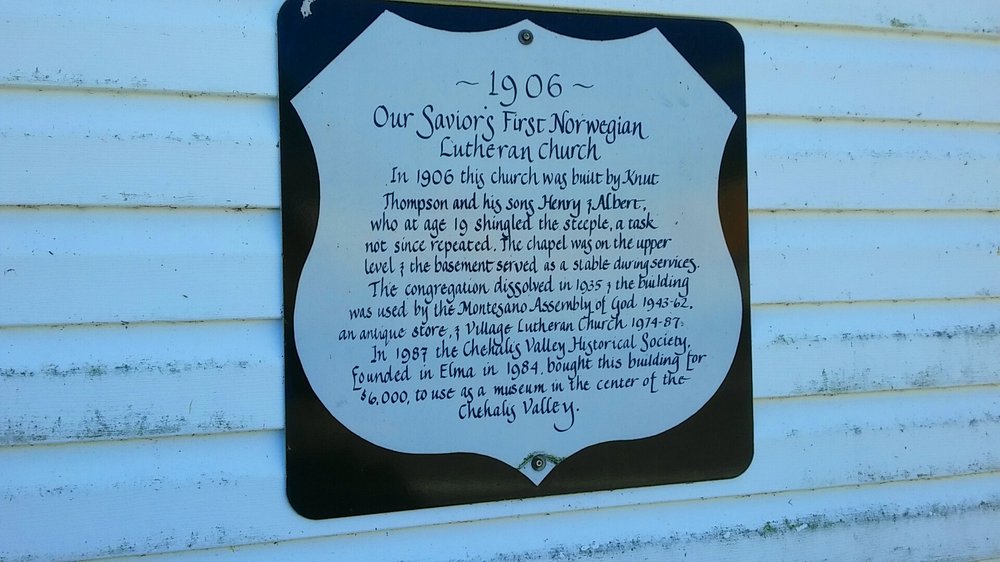 ~ 1906 ~
Our Savior's First Norwegian
Lutheran Church
In 1906 this church was built by Knut
Thompson and his sons Henry & Albert,
who at age 19 shingled the steeple, a task
not since repeated. The chapel was on the upper
level & the basement served as a stable during services.
The congregation dissolved in 1935 & the building
was used by the Montesano Assembly of God 1943-62,
an antique store, & Village Lutheran Church 1974-87.
In 1987 the Chehalis Valley Historical Society,
founded in Elma in 1984, bought this building for
$6,000, to use as a museum in the center of the
Chehalis Valley.